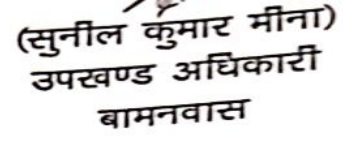 (सुनील कुमार मीना)
उपखण्ड अधिकारी
बामनवास